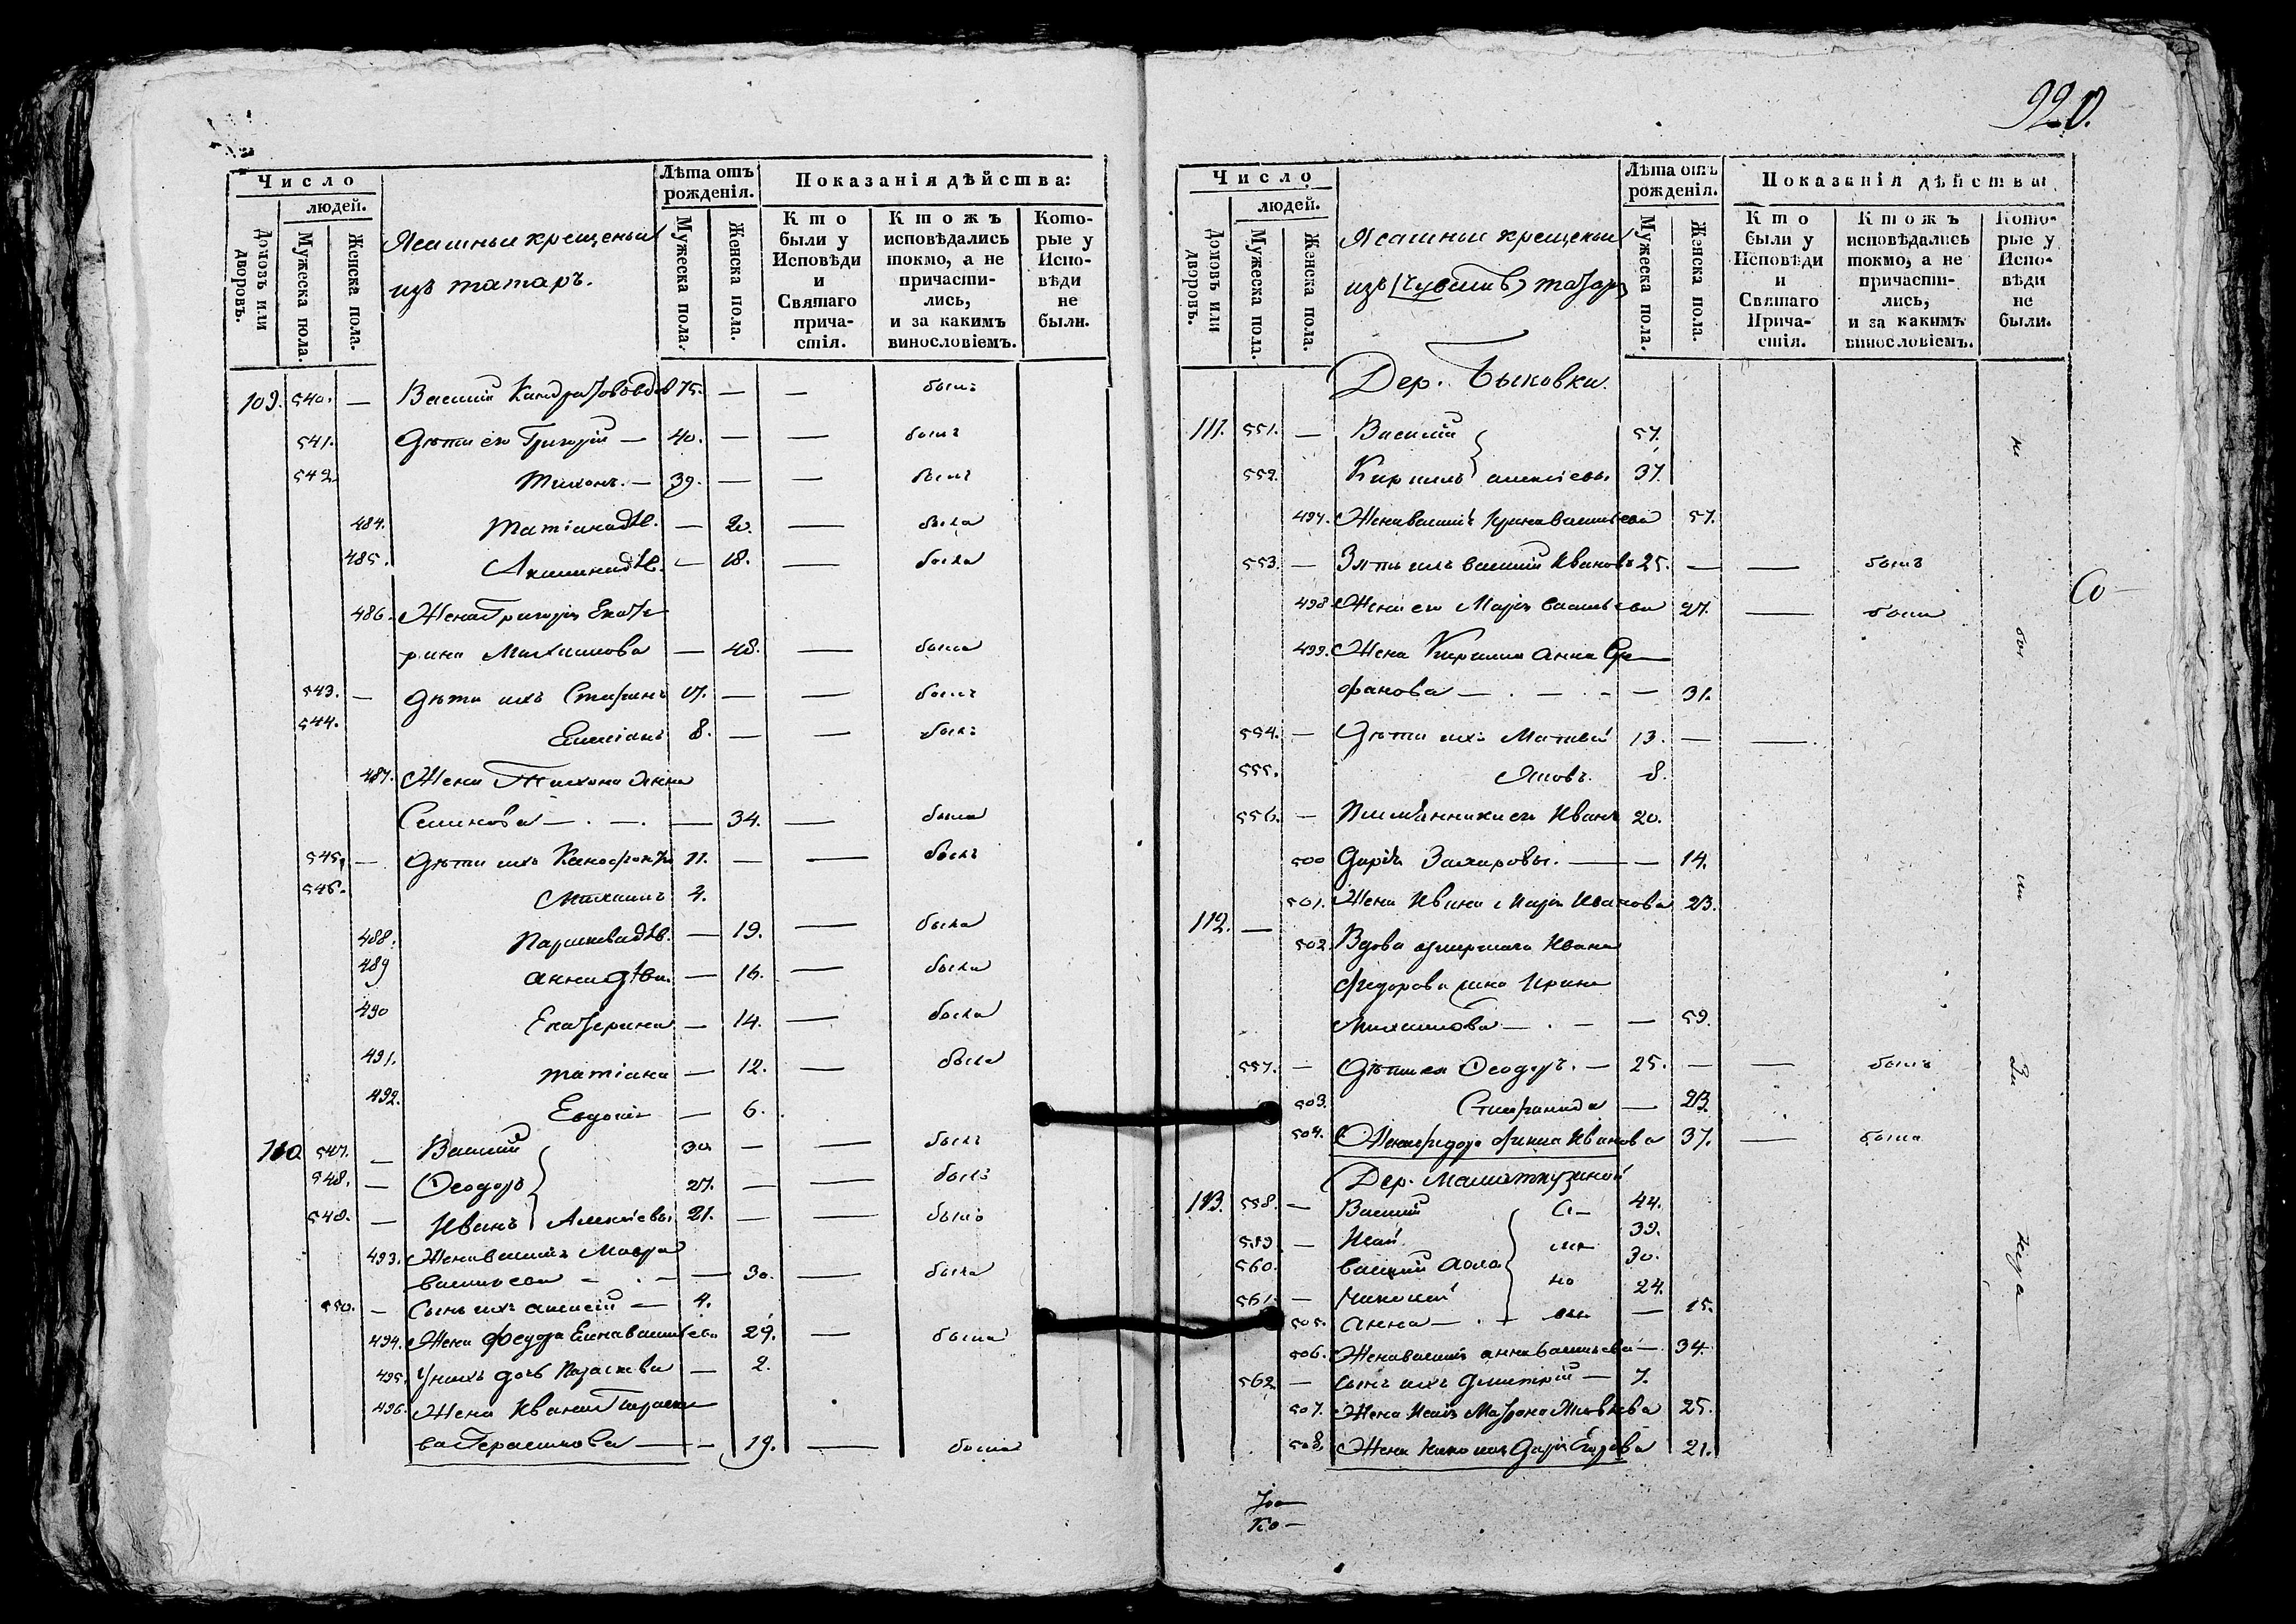 920.
Число
людей.
Домовъ или дворовъ.
Мужеска пола.
Женска пола.
Ясашныи крещеныи
изъ татаръ.
Лѣта отъ рожденія.
Мужеска пола.
Женска пола.
Показанія дѣйства:
Кто были у Исповѣди и Святаго причастія.
Ктожъ исповѣдались токмо, а не причастились, и за какимъ винословіемъ.
Которые у Исповѣди не были.
109. 540. — Василій 75. — — былъ
541. Дѣти его Григорій — 40. — — былъ
542. Тихонъ. — 39. — — былъ
484. Татіана дѣв. — 20. — была
485. Акилина дѣв. — 18. — была
486. Жена Григорія Екате
рина Михаилова — 48. — была
543. — Дѣти ихъ Стефанъ 17. — — былъ
544. Емиліанъ 8. — — былъ
487. Жена Тихона Анна
Семенова — . — . — 34. — была
545. — Дѣти ихъ 11. — — былъ
546. Михаилъ 4.
488. Параскева дѣв. — 19. — была
489 Анна дѣв. — 16. — была
490 Екатерина — 14. — была
491. Татіана — 12. — была
492. Евдокія — 6.
110 547. — Василій 30. — — былъ
548. — Ѳеодоръ 27. — — былъ
549. — Иванъ Алексіевы 21. — — былъ
493. Жена Василія Мавра
Васильева — . — — 30. — была
550. — Сынъ ихъ Алексій — 4.
494. Жена Ѳеодора Елена Васильева 29. — была
495. У нихъ дочь Параскева — 2.
496. Жена Ивана Параске
ва Герасимова — — 19. — была
Число
людей.
Домовъ или дворовъ.
Мужеска пола.
Женска пола.
Ясашныи крещеныи
изъ (Чувашъ) татаръ
Лѣта отъ рожденія.
Мужеска пола.
Женска пола.
Показанія дѣйства
Кто были у Исповѣди и Святаго Причастія.
Ктожъ исповѣдались токмо, а не причастились, и за какимъ винословіемъ.
Которые у Исповѣди не были.
Дер. Быковки.
111. 551. — Василій 57.
552. Кирилъ Алексіевы 37.
497. Жена Василія Ирина Васильева 57.
553. — Зять ихъ Василій Ивановъ 25. — — былъ
498 Жена его Марія Васильева 27. — была
499. Жена Кирилла Анна Сте
фанова — . — . — — 31.
554. — Дѣти ихъ Матвей 13. — — .
555. Яковъ. 8.
556. — Племянники его Иванъ 20.
500 Дарія Захаровы. — — 14.
501. Жена Ивана Марія Иванова 23.
112. — 502. Вдова умершаго Ивана
Федорова жена Ирина
Михаилова — . — — 59.
557. — Дѣти ея Ѳеодоръ. — 25. — — былъ
503. Степанида — 23.
504. Жена Федора Иванова 37. — была
Дер. Маматкузиной
113. 558. — Василій 44.
559 — Исай 39.
560. Василій 30.
561. — Николай 24.
505. Анна — . — — 15.
506. Жена Василія Анна Васильева — 34.
562 — Сынъ ихъ Дмитрій — 7.
507. Жена Исаія Матрона Яковлева 25.
508. Жена Николая Дарія 21.